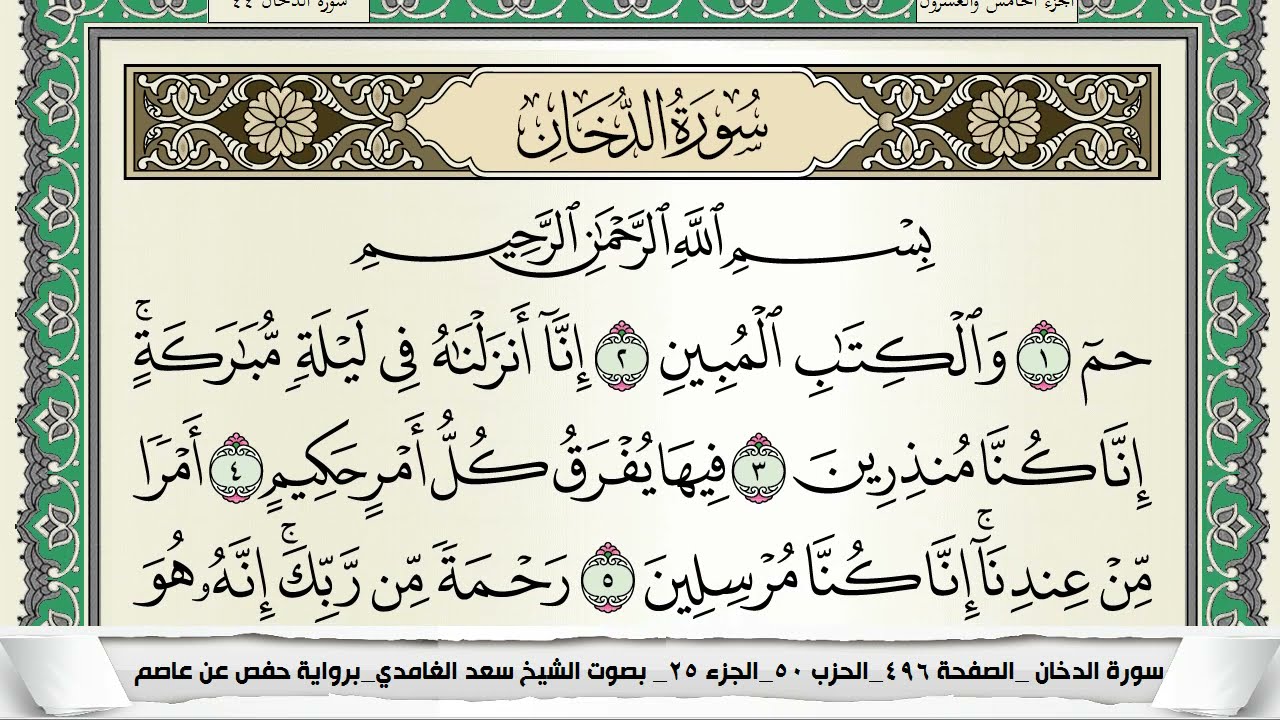 الجزء الخامس والعشرون
سورة الدخان ٤٤
سُورَةُ الدُّخَانِ
بِسْمِ ٱللَّهِ ٱلرَّحْمَٰنِ ٱلرَّحِيمِ
حمٓ ١ وَٱلْكِتَٰبِ ٱلْمُبِينِ ٢ إِنَّآ أَنزَلْنَٰهُ فِى لَيْلَةٍ مُّبَٰرَكَةٍ ۚ
إِنَّا كُنَّا مُنذِرِينَ ٣ فِيهَا يُفْرَقُ كُلُّ أَمْرٍ حَكِيمٍ ٤ أَمْرًا
مِّنْ عِندِنَآ ۚ إِنَّا كُنَّا مُرْسِلِينَ ٥ رَحْمَةً مِّن رَّبِّكَ ۚ إِنَّهُۥ هُوَ
سورة الدخان _الصفحة ٤٩٦_الحزب ٥٠_الجزء ٢٥_ بصوت الشيخ سعد الغامدي_برواية حفص عن عاصم